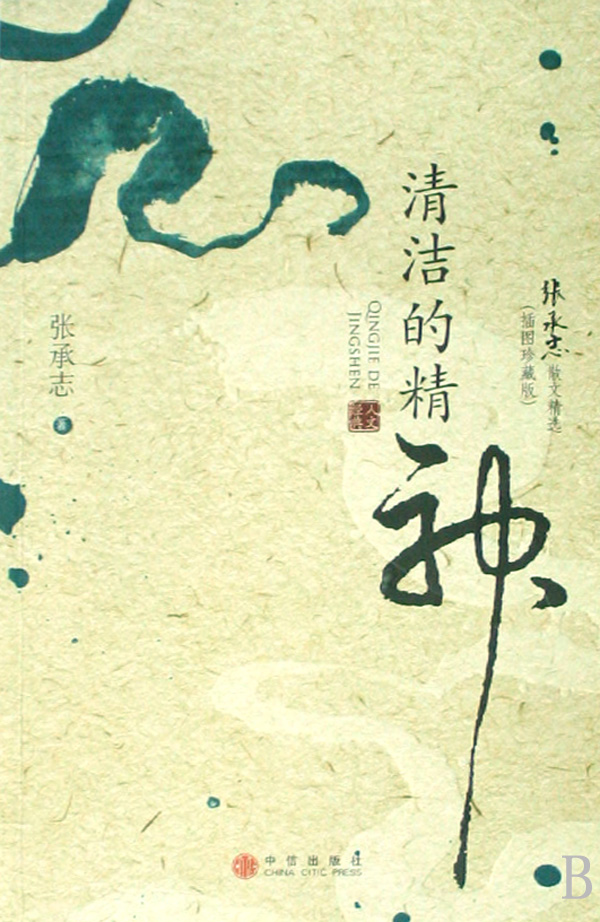 清洁的精神
QINGJIE DE
JINGSHEN
人文
张承志 散文精选
(插图珍藏版)
张承志 著
中信出版社
CHINA CITIC PRESS
B